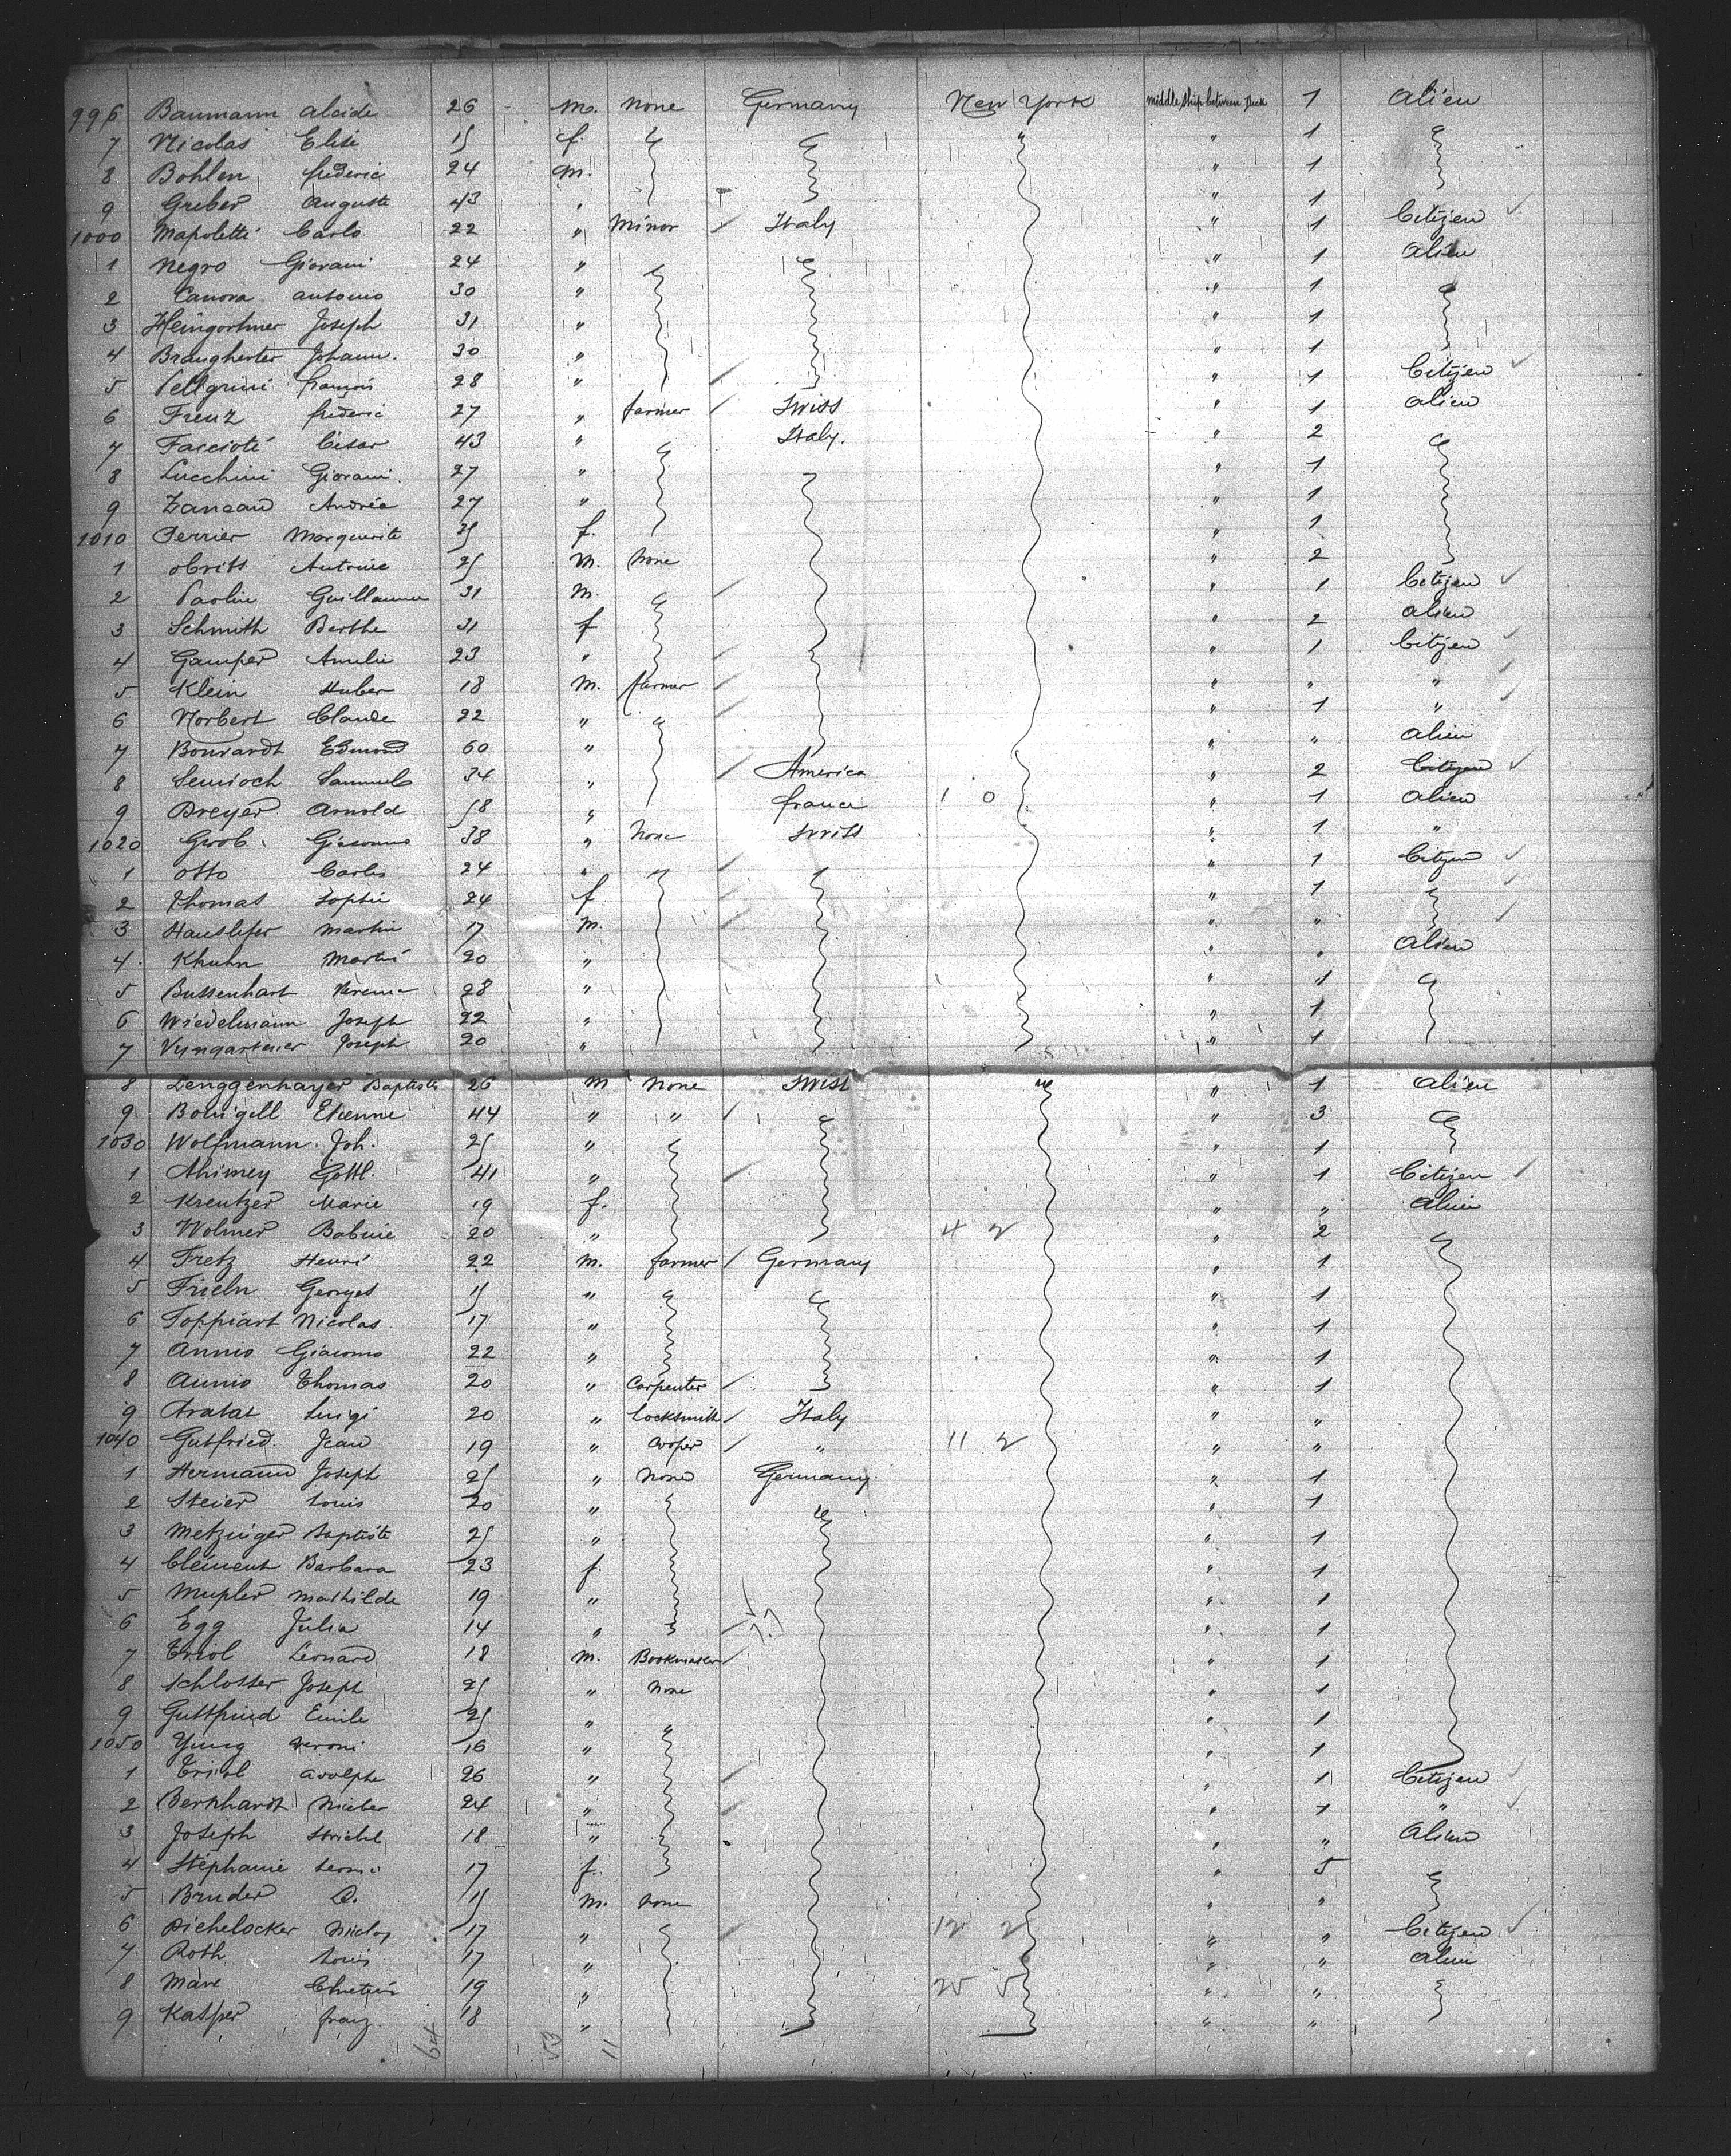 996 Baumann Alcide 26 m. none Germany New York middle ship between Deck 1 Alien
7 Nicolas Elise 15 f. " 1
8 Bohlen frederic 24 m. " 1
9 Greber Auguste 43 " " 1
1000 Mapoletti Carlo 22 " Minor Italy " 1 Citizen
1 Negro Giovani 24 " " 1 Alien
2 Canova antonio 30 " " 1
3 Heingortner Joseph 31 " " 1
4 Braugherter Johann. 30 " " 1
5 Pellgrini françois 28 " " 1 Citizen
6 Frenz frederic 27 " farmer Swiss " 1 Alien
7 Fascioté César 43 " Italy. " 2
8 Lucchini Giovani. 27 " " 1
9 Zancand Andréa 27 " " 1
1010 Perrier Marguerite 35 f. " 1
1 Obrist Antoine 25 m. none " 2
2 Paolin Guillaume 31 m. " 1 Citizen
3 Schmith Berthe 31 f " 2 Alien
4 Gamper Amelie 23 " " 1 Citizen
5 Klein Huber 18 m. farmer " " "
6 Norbert Claude 22 " " 1 "
7 Bonvardt Edmond 60 " " " Alien
8 Semioch Samuel 34 " America " 2 Citizen
9 Dreyer Arnold 58 " france 1 0 " 1 Alien
1020 Grob Giacomo 38 " none Swiss " 1 "
1 Otto Carlos 24 " " 1 Citizen
2 Thomas Sophie 24 f. " 1
3 Hauslefer Martin 17 m. " "
4 Khuhn Martin 20 " " " Alien
5 Bussenhart Verena 28 " " 1
6 Wiedelmann Joseph 22 " " 1
7 Vyngartener Joseph 20 " " 1
8 Lenggenhayer Baptiste 26 m none Swiss " 1 Alien
9 Bourgell Etienne 44 " " " 3
1030 Wolfmann Joh. 25 " " 1
1 Ahimey Gottl. 41 " " 1 Citizen
2 Kreutzer Marie 19 f. " " Alien
3 Wolmer Babine 20 " 4 2 " 2
4 Fretz Henri 22 m. farmer Germany " 1
5 Frieln Georges 15 " " 1
6 Toppiart Nicolas 17 " " 1
7 Annio Giacomo 22 " " 1
8 Annio Thomas 20 " Carpenter " 1
9 Aratat Luigi 20 " Locksmith Italy " "
1040 Gutfried Jean 19 " Cooper " 11 2 " "
1 Hermann Joseph 25 " none Germany. " 1
2 Steier Louis 20 " " 1
3 Metzinger Baptiste 25 " " 1
4 Clément Barbara 23 f. " 1
5 Mupler Mathilde 19 " " 1
6 Egg Julia 14 " " 1
7 Triol Léonard 18 m. Bookmaker " 1
8 Schlosser Joseph 25 " none " 1
9 Guttfried Emile 25 " " 1
1050 Yung Veroni 16 " " 1
1 Triol Adolphe 26 " " 1 Citizen
2 Bernhardt 24 " " 1 "
3 Joseph Striebel 18 " " " Alien
4 Stéphanie Leonie 17 f. " 5
5 Bruder A. 15 m. none " "
6 Dichelocker Nicolas 17 " 12 2 " " Citizen
7 Roth Louis 17 " " " Alien
8 Mare Chretien 19 " 20 5 " "
9 Kasper franz. 18 " " "
64 53 11